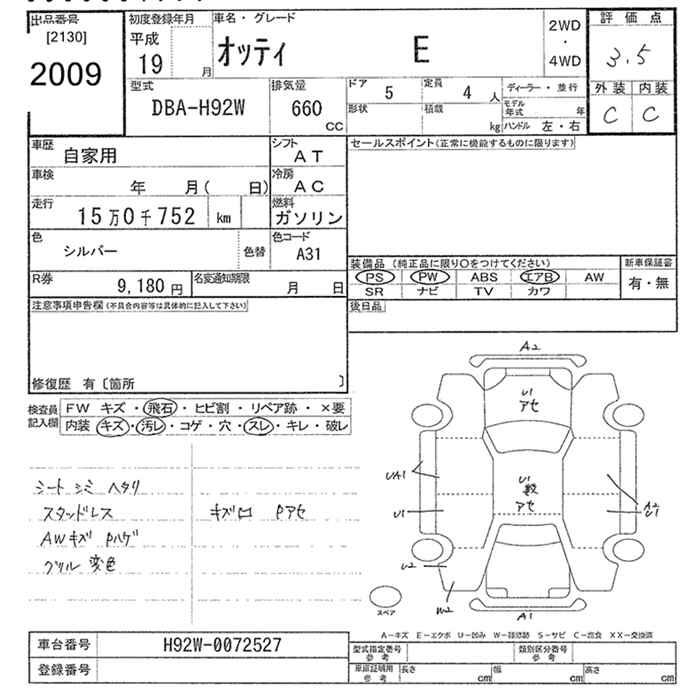 出品番号
[2130]
2009
初度登録年月
平成
19 月
車名・グレード
オッティ E
2WD
・
4WD
評価点
3.5
外装 内装
C C
型式
DBA-H92W
排気量
660
CC
ドア 5
定員 4 人
形状
積載 kg
ディーラー・並行
モデル年式 年
ハンドル 左・右
車歴 自家用
シフト AT
車検 年 月( 日)
冷房 AC
走行 15万0千752 km
燃料 ガソリン
色 シルバー 色替
色コード A31
R券 9,180円
名変通知期限 月 日
セールスポイント(正常に機能するものに限ります)
装備品 (純正品に限り○をつけてください)
PS PW ABS エアB AW
SR ナビ TV カワ
新車保証書
有・無
後日品
注意事項申告欄(不具合内容等は具体的に記入して下さい)
修復歴 有〔箇所 〕
検査員記入欄
FW キズ・飛石・ヒビ割・リペア跡・×要
内装 キズ・汚レ・コゲ・穴・スレ・キレ・破レ
シート シミ ヘタリ
スタッドレス キズ口 Pアセ
AWキズ Pハゲ
グリル 変色
A2
U1
アセ
UA1
U1
U1
アセ
A2
U1
U2
W2
A1
スペア
A−キズ E−エクボ U−凹み W−補修跡 S−サビ C−腐食 XX−交換済
車台番号 H92W-0072527
登録番号
型式指定番号
参考
類別区分番号
参考
車庫証明用
参考
長さ cm
幅 cm
高さ cm